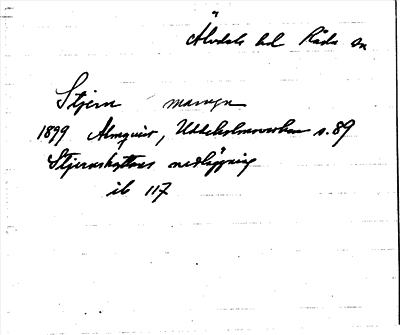 Älvdals hd Råda sn
Stjern masugn
1899 Almquist, Uddeholmsverken s. 89
Stjernshyttans nedläggning
ib 117